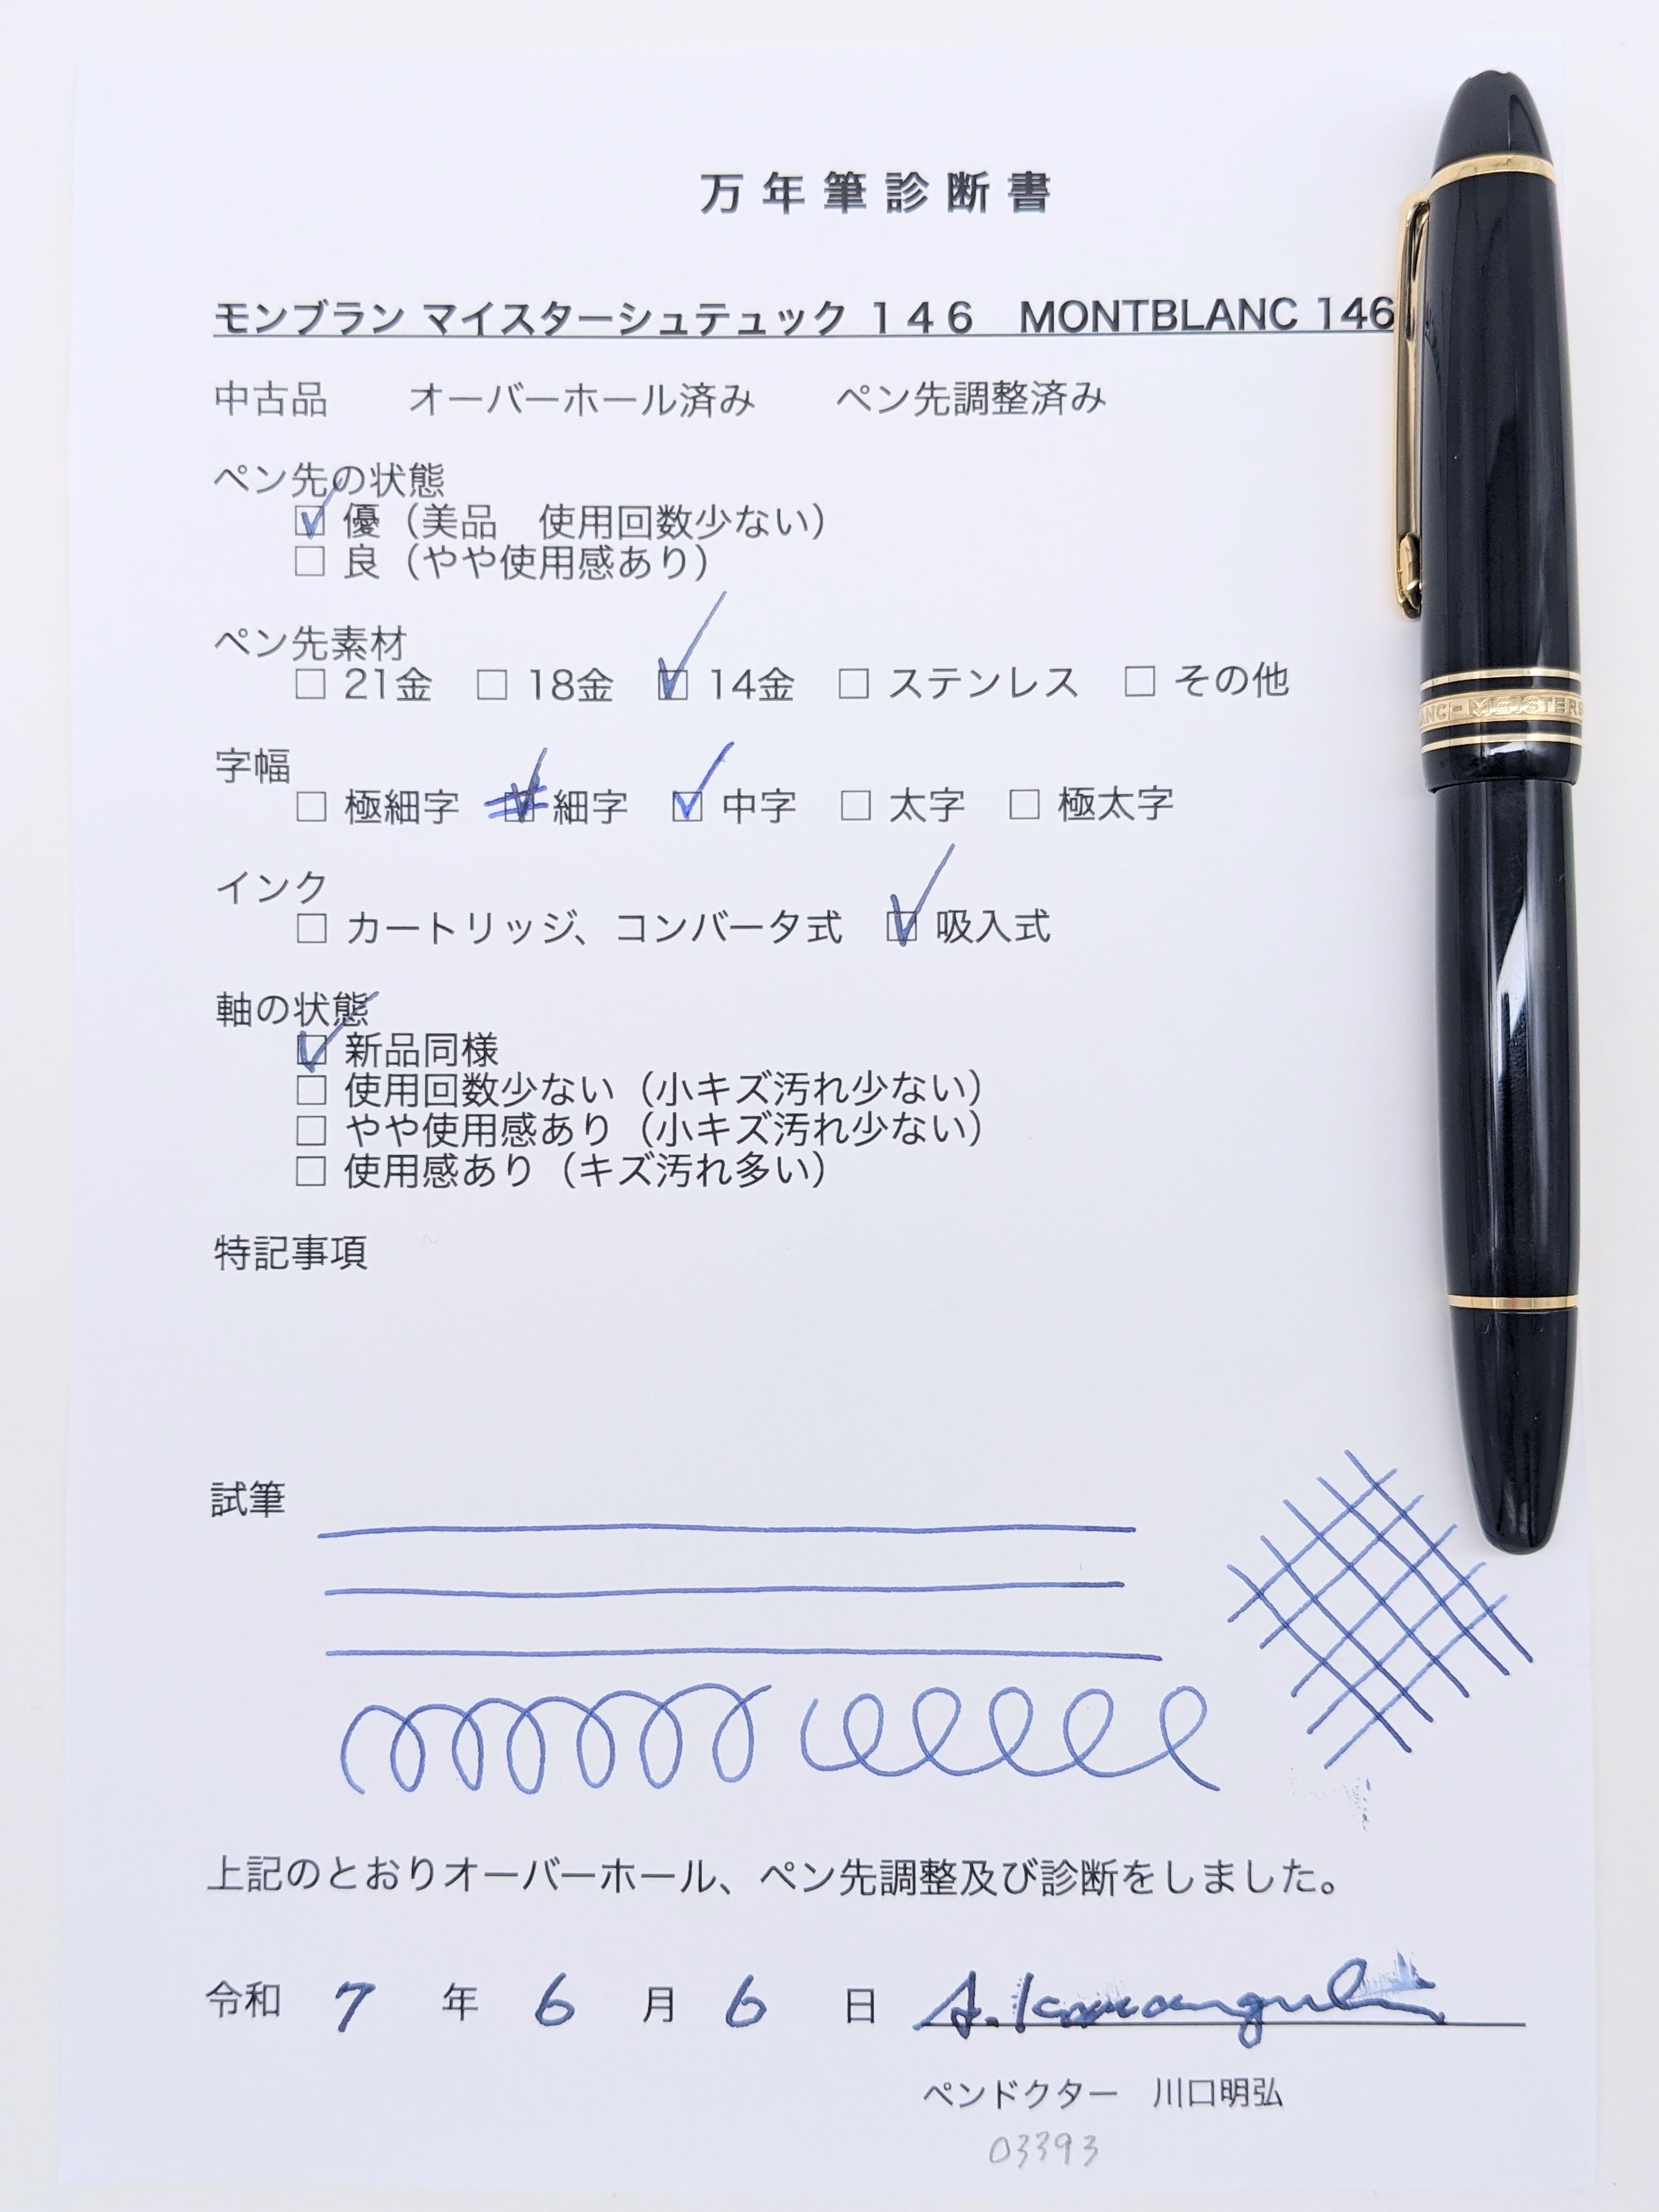 万年筆診断書
モンブラン マイスターシュテュック １４６　MONTBLANC 146
中古品　　オーバーホール済み　　ペン先調整済み
ペン先の状態
☑ 優（美品　使用回数少ない）
☐ 良（やや使用感あり）
ペン先素材
☐ 21金　☐ 18金　☑ 14金　☐ ステンレス　☐ その他
字幅
☐ 極細字　☑ 細字　☑ 中字　☐ 太字　☐ 極太字
インク
☐ カートリッジ、コンバータ式　☑ 吸入式
軸の状態
☑ 新品同様
☐ 使用回数少ない（小キズ汚れ少ない）
☐ やや使用感あり（小キズ汚れ少ない）
☐ 使用感あり（キズ汚れ多い）
特記事項
試筆
上記のとおりオーバーホール、ペン先調整及び診断をしました。
令和 7 年 6 月 6 日 A. Kawaguchi
ペンドクター　川口明弘
03393
ANC - MEISTERS